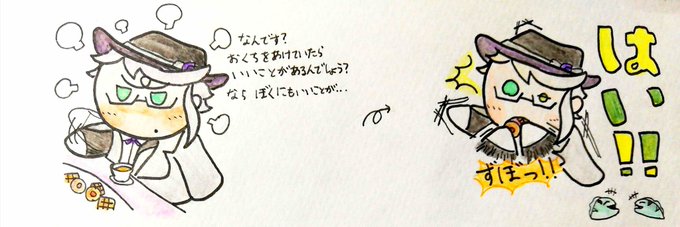 なんです?
おくちをあけていたら
いいことがあるんでしょう?
なら ぼくにもいいことが...
はい!!
ずぼっ!!